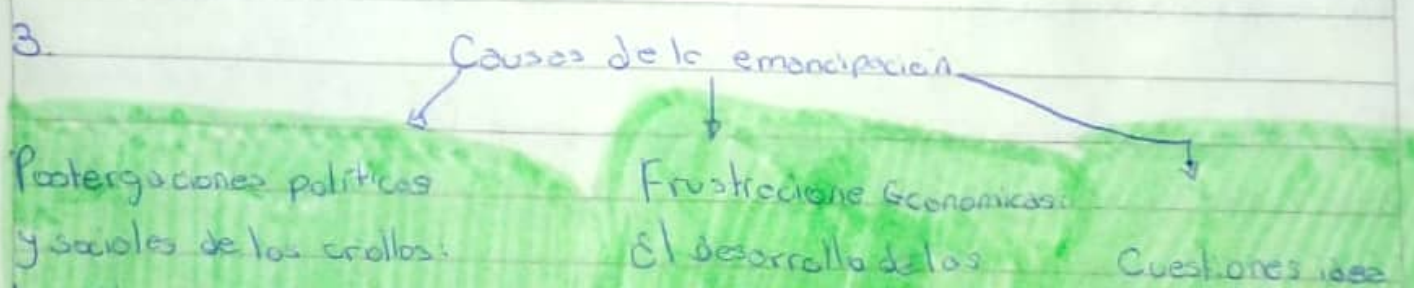 3.
Causas de la emancipación
Postergaciones políticas
y sociales de los crollos:
Frustracione Economicas:
El desarrollo de las
Cuestiones idea